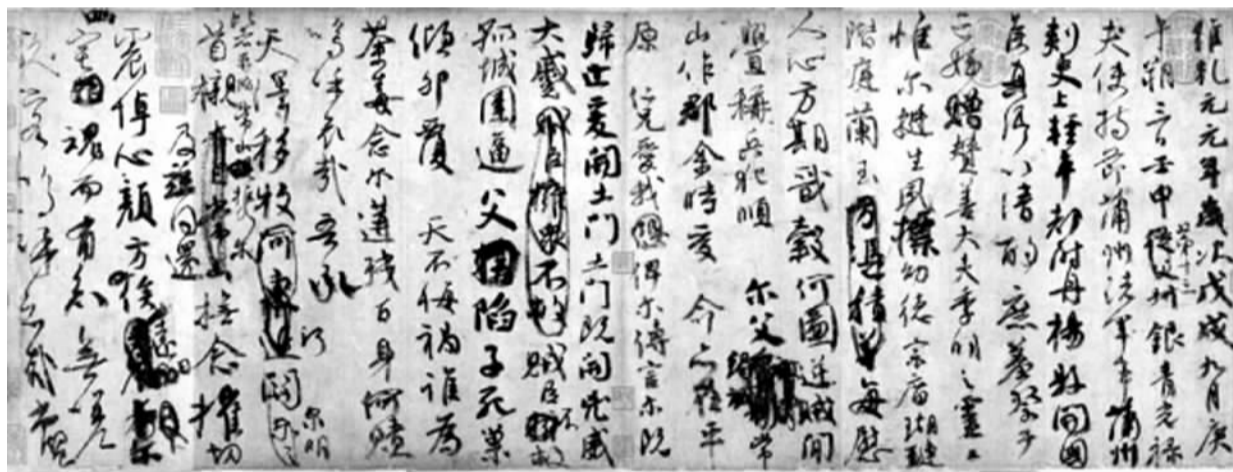 維乾元元年歲次戊戌九月庚
午朔三日壬申第十三叔銀青光祿
夫使持節蒲州諸軍事蒲州
刺史上輕車都尉丹楊縣開國
侯真卿以清酌庶羞祭于
亡姪贈贊善大夫季明之靈曰
惟爾挺生夙標幼德宗廟瑚璉
階庭蘭玉方憑積善每慰
人心方期戩穀何圖逆賊間
釁稱兵犯順爾父竭誠常
山作郡余時受命亦在平
原仁兄愛我俾爾傳言爾既
歸止爰開土門土門既開凶威
大蹙賊臣擁衆不救賊臣不救
孤城圍逼父陷子死巢
傾卵覆天不悔禍誰為
荼毒念爾遘殘百身何贖
嗚乎哀哉吾承
天澤移牧河關泉明
比者再陷常山攜爾
首櫬及茲同還撫念摧切
震悼心顏方俟遠日
宅魂而有知無嗟
久客嗚呼哀哉尚饗